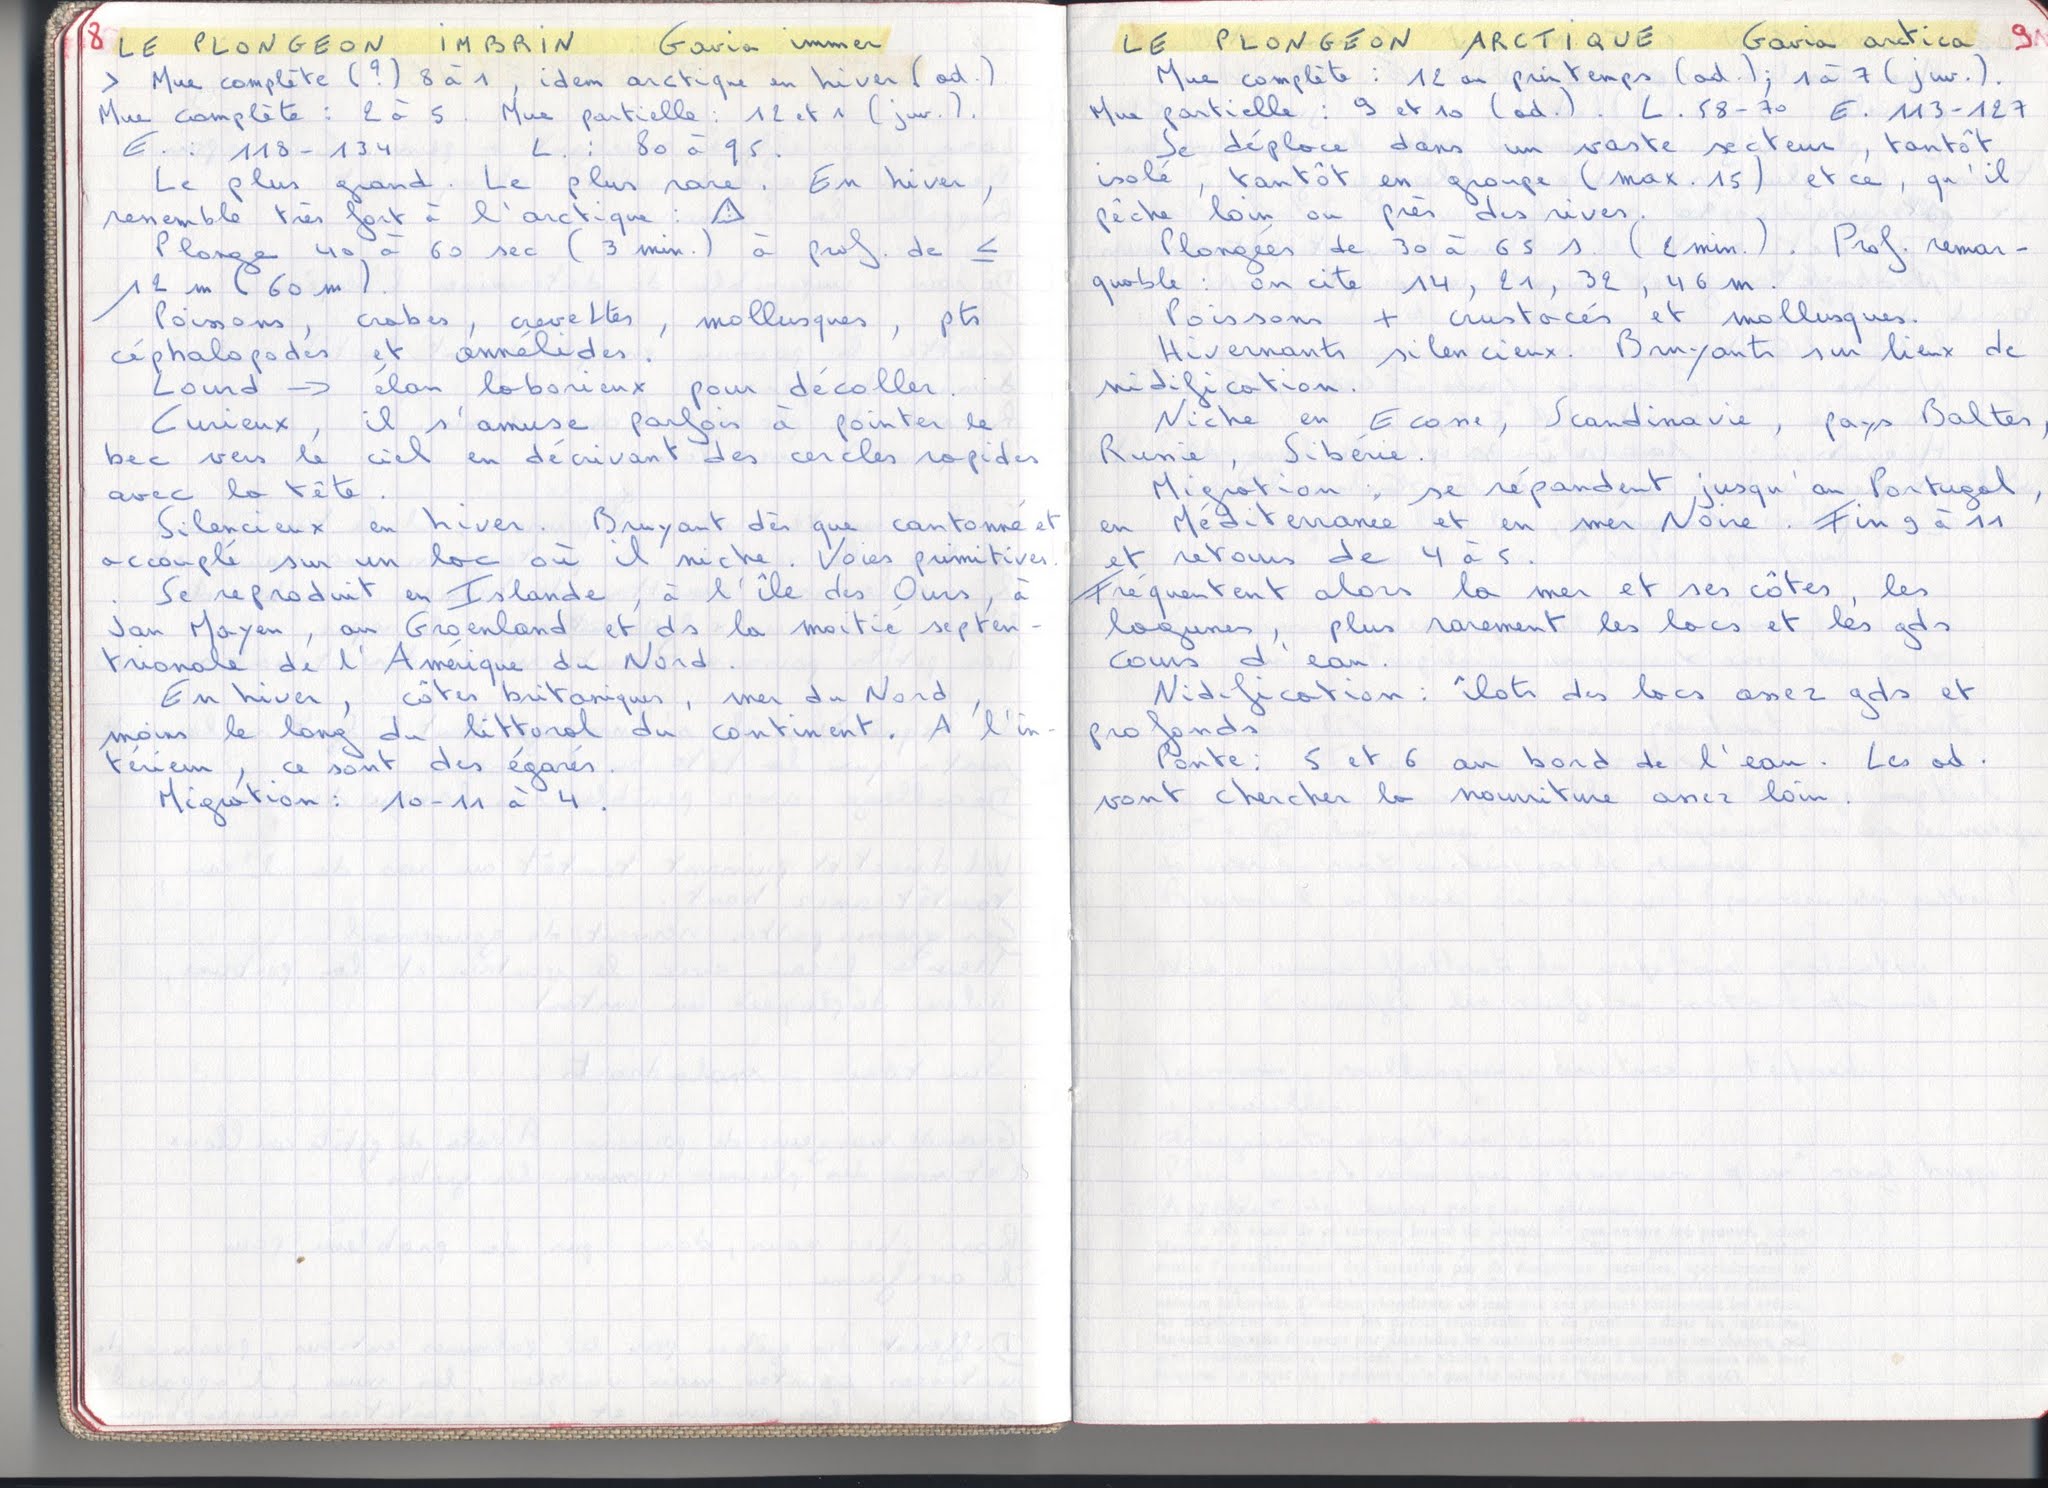 8
LE PLONGEON IMBRIN Gavia immer
> Mue complète (?) 8 à 1, idem arctique en hiver (ad.)
Mue complète : 2 à 5. Mue partielle : 12 et 1 (juv.).
E. : 118-134 L. : 80 à 95.
Le plus grand. Le plus rare. En hiver,
ressemble très fort à l'arctique : ⚠
Plonge 40 à 60 sec (3 min.) à prof. de ≤
12 m (60 m).
Poissons, crabes, crevettes, mollusques, pts
céphalopodes et annélides.
Lourd → élan laborieux pour décoller.
Curieux, il s'amuse parfois à pointer le
bec vers le ciel en décrivant des cercles rapides
avec la tête.
Silencieux en hiver. Bruyant dès que cantonné et
accouplé sur un lac où il niche. Voies primitives.
Se reproduit en Islande, à l'île des Ours, à
Jan Mayen, au Groenland et ds la moitié septen-
trionale de l'Amérique du Nord.
En hiver, côtes britaniques, mer du Nord,
moins le long du littoral du continent. A l'in-
térieur, ce sont des égarés.
Migration : 10-11 à 4.
9
LE PLONGEON ARCTIQUE Gavia arctica
Mue complète : 12 au printemps (ad.); 1 à 7 (juv.).
Mue partielle : 9 et 10 (ad.). L. 58-70 E. 113-127
Se déplace dans un vaste secteur, tantôt
isolé, tantôt en groupe (max. 15) et ce, qu'il
pêche loin ou près des rives.
Plongées de 30 à 65 s. (2 min.). Prof. remar-
quable : on cite 14, 21, 32, 46 m.
Poissons + crustacés et mollusques.
Hivernants silencieux. Bruyants sur lieux de
nidification.
Niche en Ecosse, Scandinavie, pays Baltes,
Russie, Sibérie.
Migration : se répandent jusqu'au Portugal,
en Méditerranée et en mer Noire. Fin 9 à 11
et retours de 4 à 5.
Fréquentent alors la mer et ses côtes, les
lagunes, plus rarement les lacs et les gds
cours d'eau.
Nidification : îlots des lacs assez gds et
profonds
Ponte : 5 et 6 au bord de l'eau. Les ad.
vont chercher la nourriture assez loin.